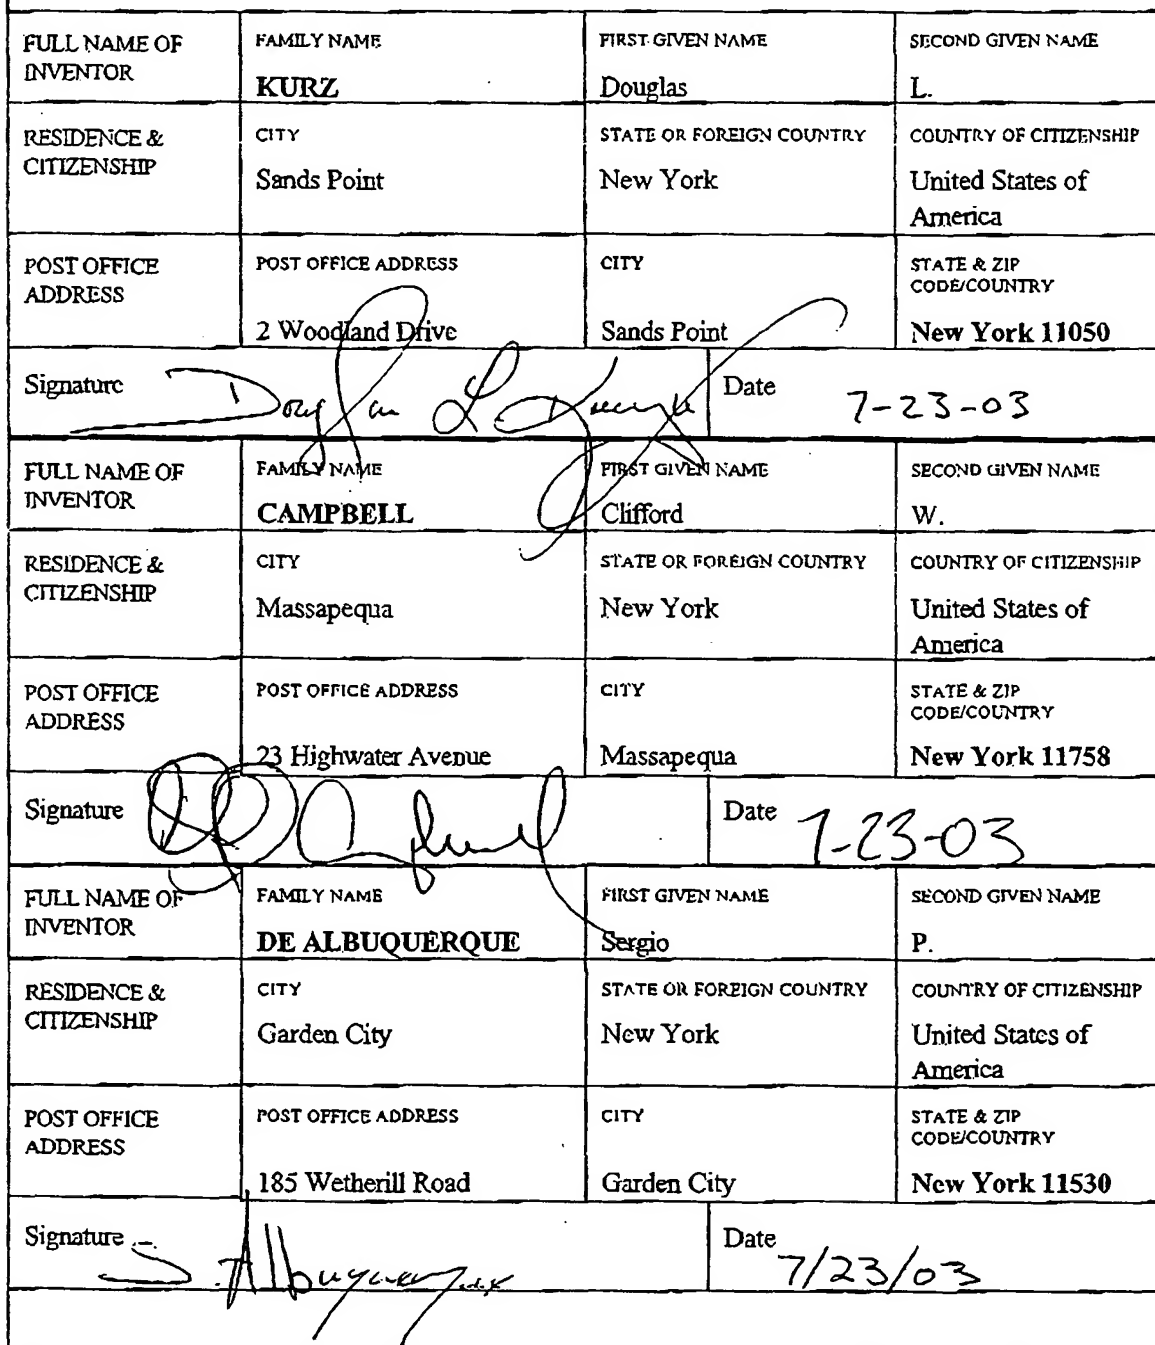 FULL NAME OF INVENTOR
FAMILY NAME
KURZ
FIRST GIVEN NAME
Douglas
SECOND GIVEN NAME
L.
RESIDENCE & CITIZENSHIP
CITY
Sands Point
STATE OR FOREIGN COUNTRY
New York
COUNTRY OF CITIZENSHIP
United States of
America
POST OFFICE ADDRESS
POST OFFICE ADDRESS
2 Woodland Drive
CITY
Sands Point
STATE & ZIP
CODE/COUNTRY
New York 11050
Signature
Douglas L Kurz
Date
7-23-03
FULL NAME OF
INVENTOR
FAMILY NAME
CAMPBELL
FIRST GIVEN NAME
Clifford
SECOND GIVEN NAME
W.
RESIDENCE &
CITIZENSHIP
CITY
Massapequa
STATE OR FOREIGN COUNTRY
New York
COUNTRY OF CITIZENSHIP
United States of
America
POST OFFICE
ADDRESS
POST OFFICE ADDRESS
23 Highwater Avenue
CITY
Massapequa
STATE & ZIP
CODE/COUNTRY
New York 11758
Signature
Date
7-23-03
FULL NAME OF
INVENTOR
FAMILY NAME
DE ALBUQUERQUE
FIRST GIVEN NAME
Sergio
SECOND GIVEN NAME
P.
RESIDENCE &
CITIZENSHIP
CITY
Garden City
STATE OR FOREIGN COUNTRY
New York
COUNTRY OF CITIZENSHIP
United States of
America
POST OFFICE
ADDRESS
POST OFFICE ADDRESS
185 Wetherill Road
CITY
Garden City
STATE & ZIP
CODE/COUNTRY
New York 11530
Signature
S. Albuquerque
Date
7/23/03